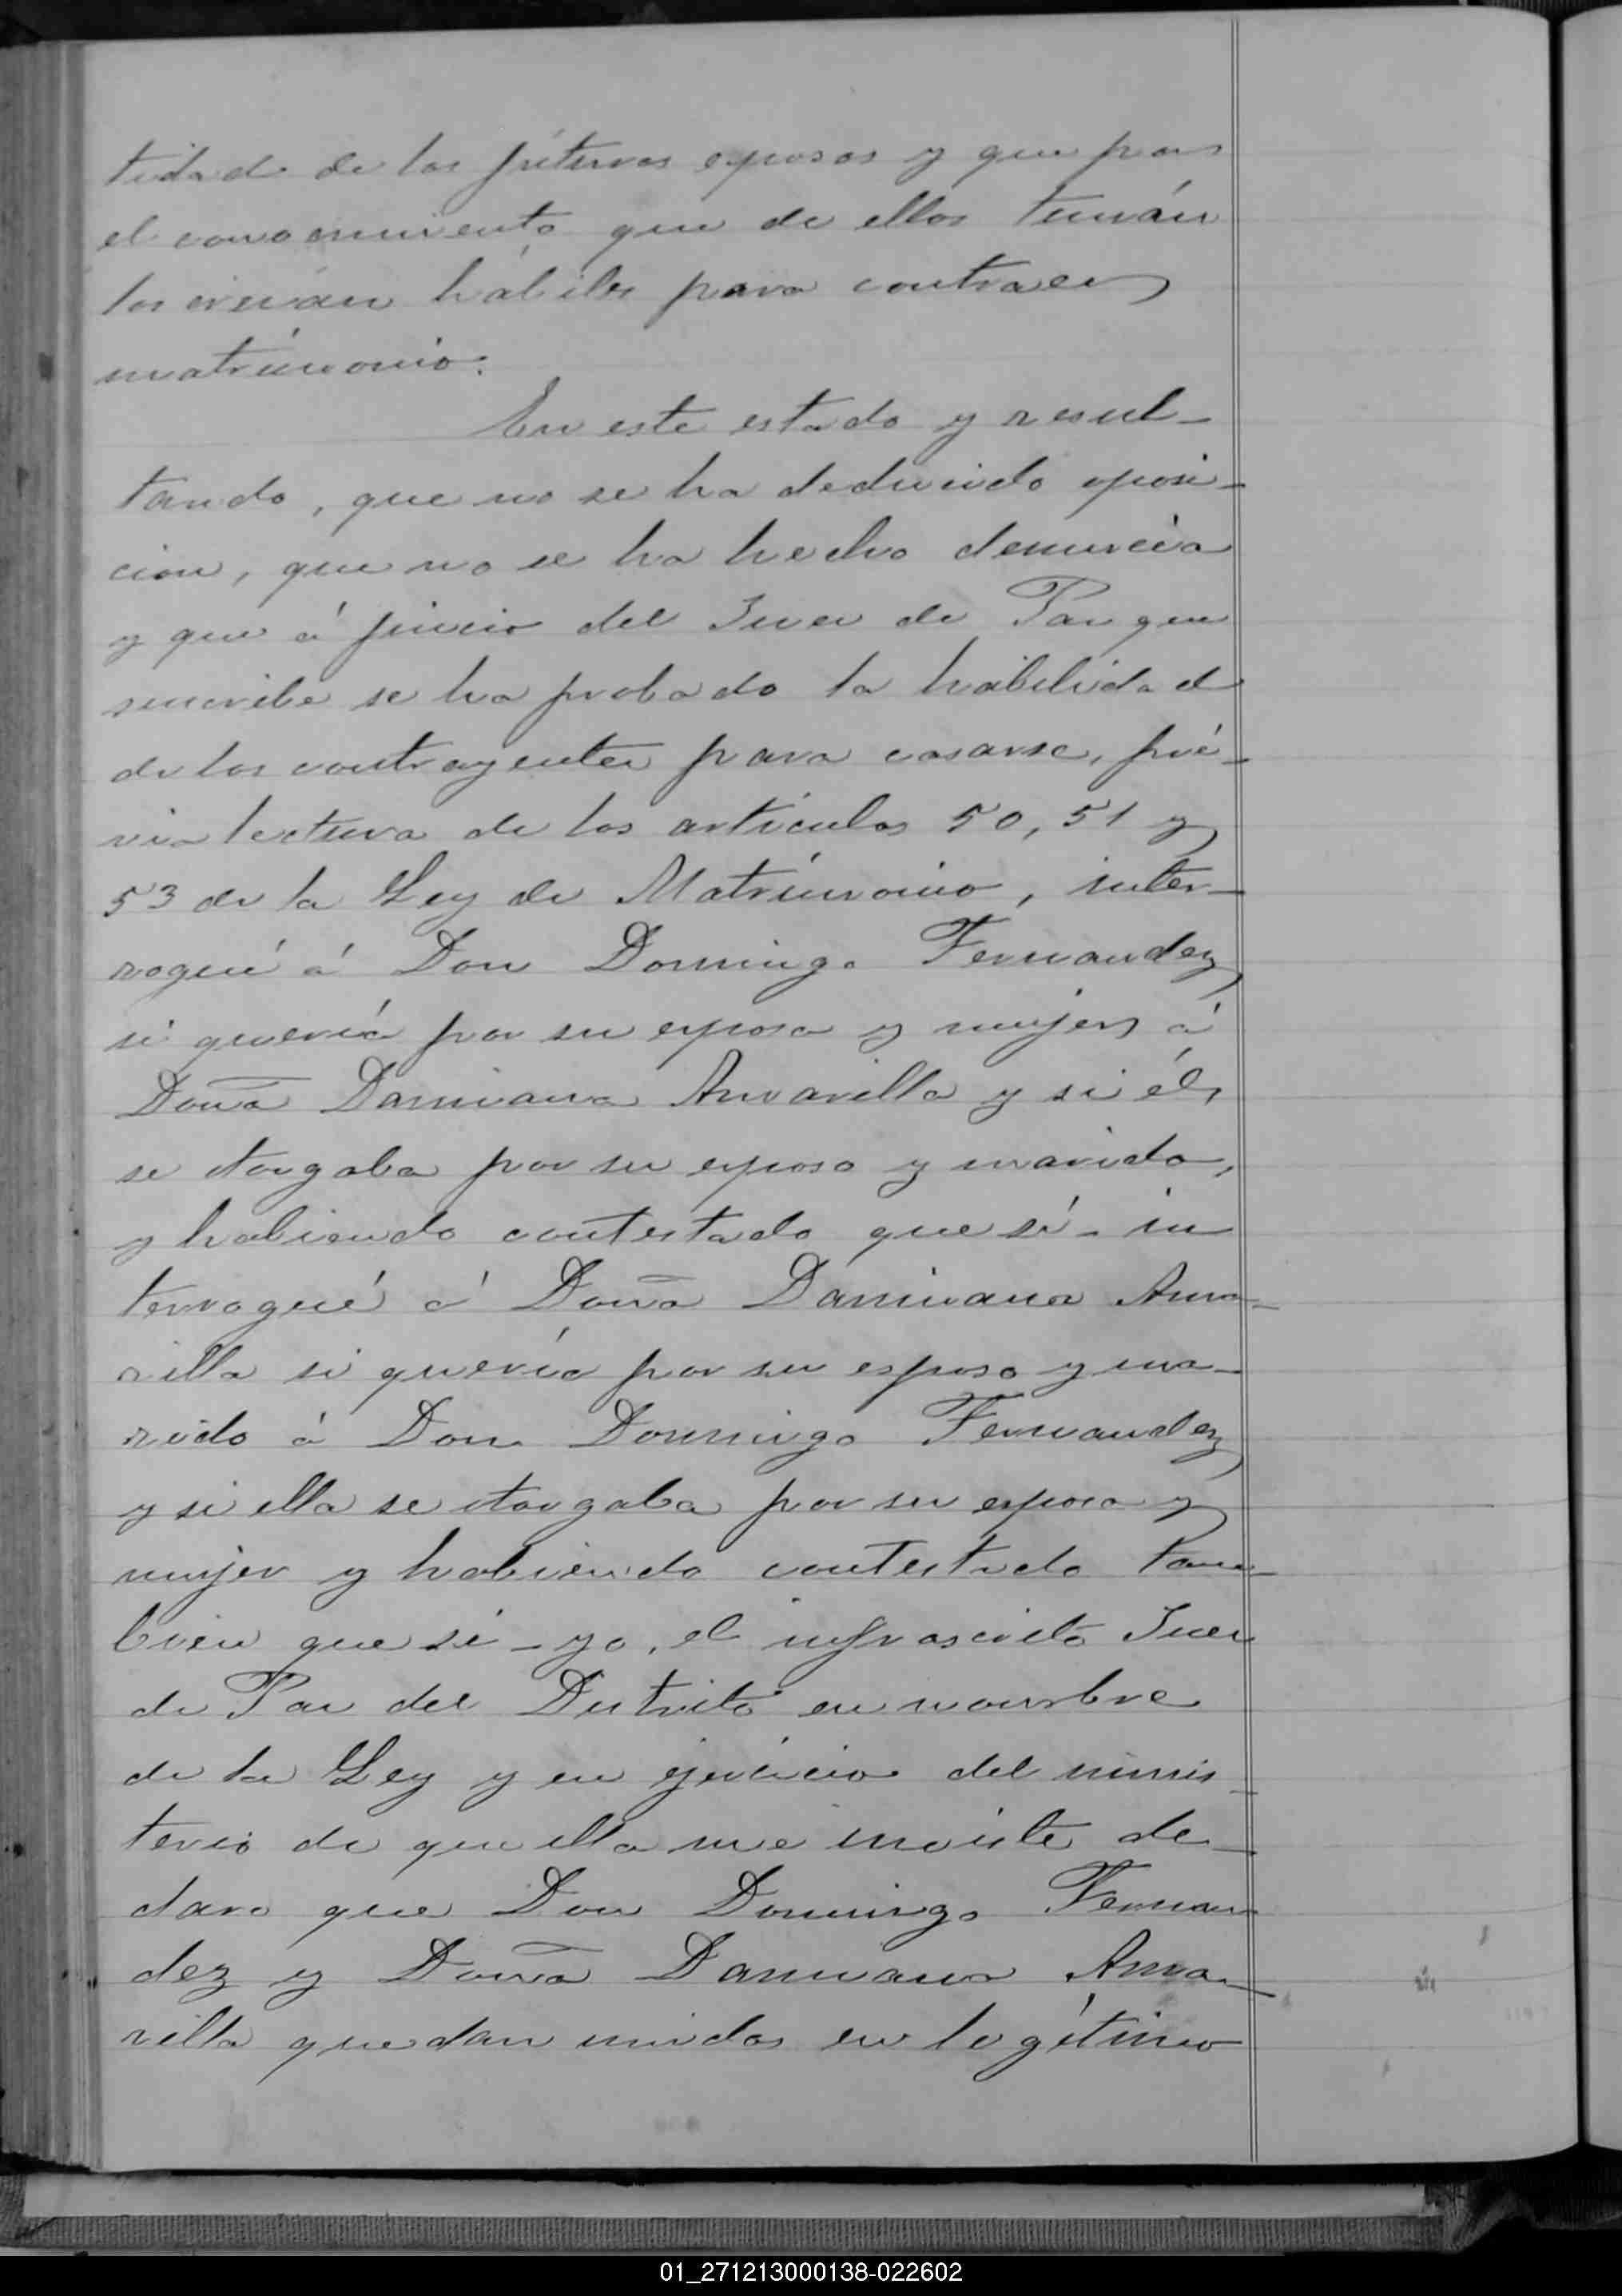 tidad de los fúturos esposos y que por
el conocimiento que de ellos tenián
los creián hábiles para contraer
matrimonio.
En este estado y resul-
tando, que no se ha deducido oposi-
cion, que no se ha hecho denuncia
y que á juicio del Juez de Paz que
suscribe se ha probado la habilidad
de los contrayentes para casarse, pré-
via lectura de los artículos 50, 51 y
53 de la Ley de Matrimonio, inter-
rogué á Don Domingo Fernandez
si quería por su esposa y mujer á
Doña Damiana Amarilla y si él
se otorgaba por su esposo y marido,
y habiendo contestado que sí - in
terrogué á Doña Damiana Ama-
rilla si quería por su esposo y ma-
rido á Don Domingo Fernandez
y si ella se otorgaba por su esposa y
mujer y habiendo contestado tam-
bien que sí - yo, el infrascrito Juez
de Paz del Distrito en nombre
de la Ley y en ejercicio del minis-
terio de que ella me inviste de-
claro que Don Domingo Fernan
dez y Doña Damiana Ama-
rilla quedan unidos en legítimo
01_271213000138-022602